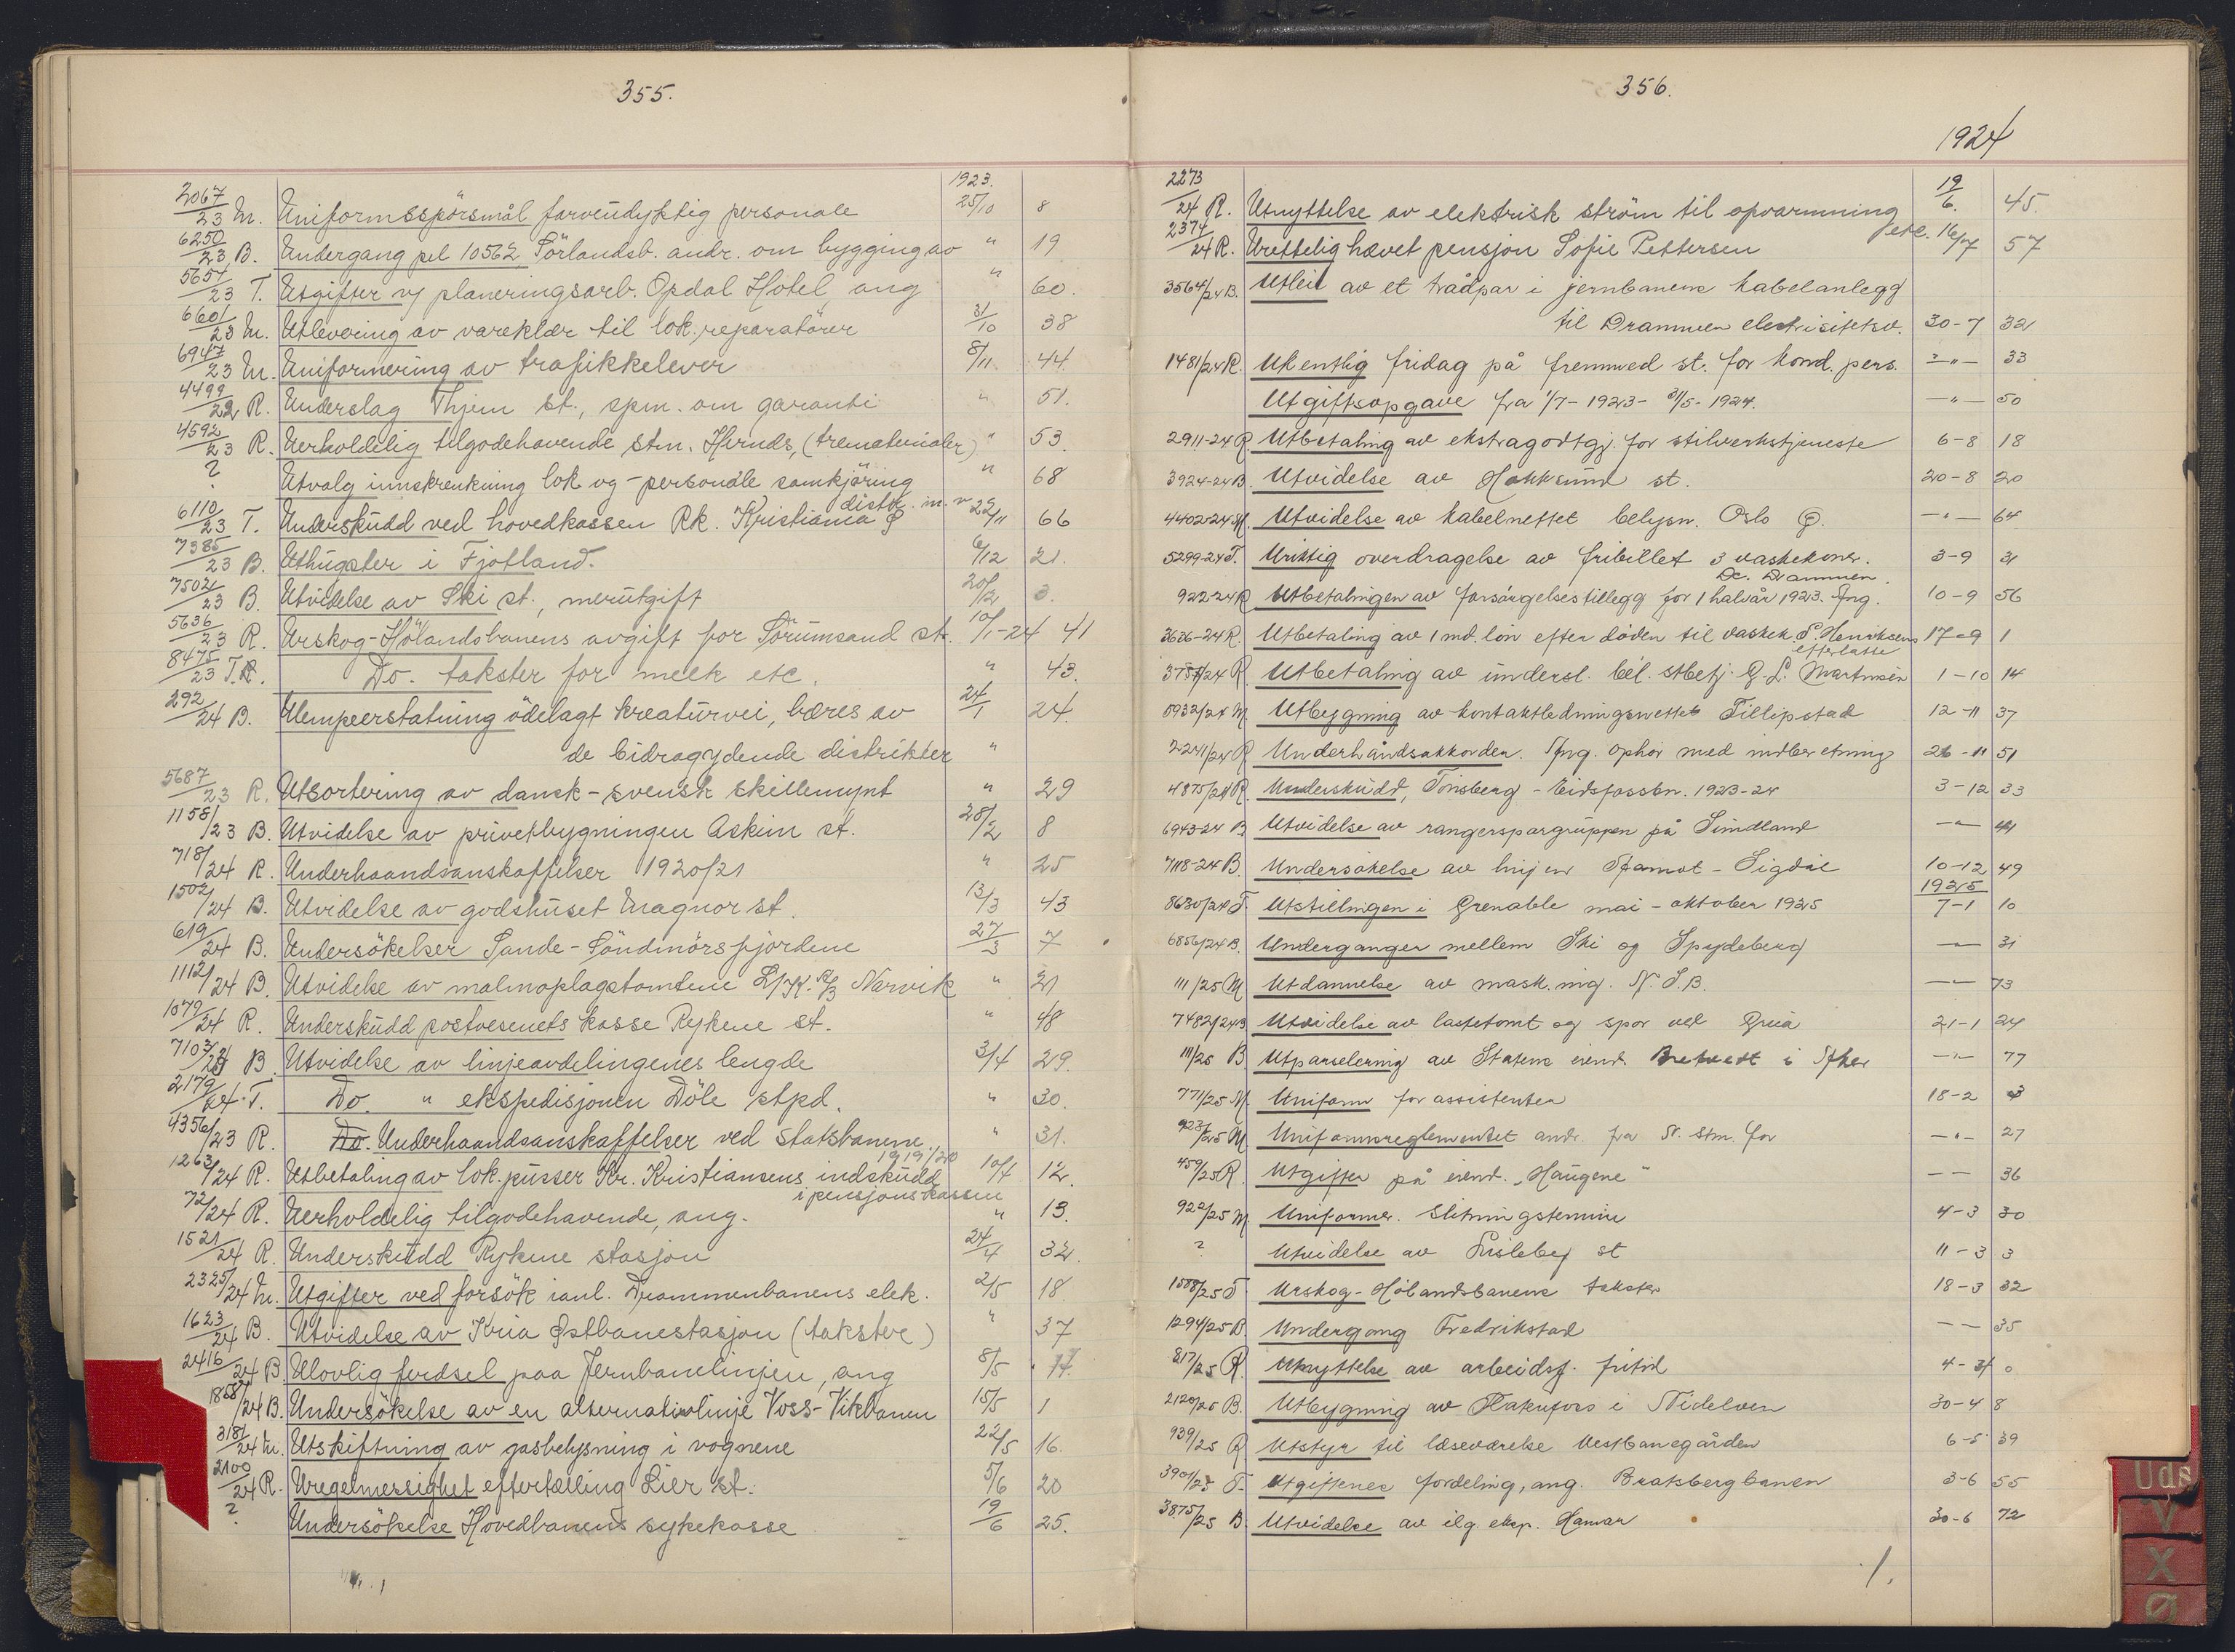 355.
1923.
2067/23 M. Uniformsspörsmål farveudyktig personale 25/10 8
6250/23 B. Undergang pel 10562 Sörlandsb. andr. om bygging av " 19
5657/23 T. Utgifter v/ planeringsarb. Opdal Hotel, ang " 60.
6601/23 M. Utlevering av vareklær til lok. reparatörer 31/10 38
6947/23 M. Uniformering av trafikkelever 8/11 44.
4499/22 R. Underslag Thjem st., spm. om garanti " 51.
4592/23 R. Uerholdelig tilgodehavende stm. Hernds, (trematerialer) " 53.
? Utvalg innskrenkning lok og - personale samkjöring " 68
distr. m. v
6110/23 T. Underskudd ved hovedkassen Rk. Kristiania Ø 22/11 66
7385/23 B. Uthugster i Fjotland. 6/12 21.
7502/23 B. Utvidelse av Ski st., merutgift 20/12 3.
5636/23 R. Urskog-Hölandsbanens avgift for Sörumsand st. 10/1-24 41
8475/23 T.R. Do. takster for melk etc. " 43.
292/24 B. Ulempeerstatning ödelagt kreaturvei, bæres av 24/1 24.
de bidragydende distrikter "
5687/23 R. Utsortering av dansk-svensk skillemynt " 29
1158/23 B. Utvidelse av privetbygningen Askim st. 28/2 8
718/24 R. Underhaandsanskaffelser 1920/21 " 25
1502/24 B. Utvidelse av godshuset Magnor st. 13/3 43
619/24 B. Undersökelser Sande-Söndmörsfjordene 27/3 7
1112/24 B. Utvidelse av malmoplagstomtene L/K. A/B Narvik " 21
1079/24 R. Underskudd postvesenets kasse Rykene st. " 48
7103/23 B. Utvidelse av linjeavdelingenes lengde 3/4 29.
2179/24 T. Do. " ekspedisjonen Döle stpd. " 30.
4356/23 R. Do. Underhaandsanskaffelser ved Statsbanene. " 31.
1919/20
1263/24 R. Utbetaling av lok. pusser Kr. Kristiansens indskudd 10/4 12.
i pensjonskassen
72/24 R. Uerholdelig tilgodehavende, ang. " 13.
1521/24 R. Underskudd Rykene stasjon 24/4 32.
2325/24 M. Utgifter ved forsök ianl. Drammenbanens elek. 2/5 18.
1623/24 B. Utvidelse av Kria Østbanestasjon (takster) " 37
2416/24 B. Ulovlig ferdsel paa Jernbanelinjen, ang 8/5 17.
1858/24 B. Undersökelse av en alternativlinje Voss-Vikbanen 15/5 1
3181/24 M. Utskiftning av gasbelysning i vognene 22/5 16.
2100/24 R. Uregelmessighet eftertælling Lier st. 5/6 20
? Undersökelse Hovedbanens sykekasse 19/6 25.
356.
1924
2273/24 R. Utnyttelse av elektrisk ström til opvarmning 19/6. 45.
etc.
2374/24 R. Urettelig hævet pensjon Sofie Pettersen 16/7 57
3564/24 B. Utleie av et trådpar i jernbanens kabelanlegg
til Drammen electrisitetsv. 30-7 32
1481/24 R. Ukentlig fridag på fremmed st. for kond. pers. -"- 33
Utgiftsopgave fra 1/7-1923- 31/5-1924. -"- 50
2911-24 R. Utbetaling av ekstragodtgj. for stilverkstjeneste 6-8 18
3924-24 B. Utvidelse av Hokksund st. 20-8 20
4402-24 M. Utvidelse av kabelnettet belysn. Oslo Ø. -"- 64
5299-24 T. Uriktig overdragelse av fribillet 3 vaskekoner. 3-9 31
Dc. Drammen.
922-24 R Utbetalingen av forsörgelsestillegg for 1 halvår 1923. Ang. 10-9 56
3636-24 R. Utbetaling av 1 md. lön efter döden til vaskek. S. Henriksens 17-9 1
efterlatte
24 R. Utbetaling av undersl. bel. stbetj. G. L. Martinsen 1-10 14
24 M. Utbygning av kontaktledningsnettet Fillipstad 12-11 37
2241/24 R Underhåndsakkorden. Spg. ophör med indberetning 26-11 51
4875/24 R. Underskudd, Tönsberg-Eidsfossbn. 1923-24 3-12 33
6943-24 B Utvidelse av rangersporgruppen på Sundland -"- 44
7118-24 B. Undersökelse av linjen Åmot-Sigdal 10-12 49
1925
8630/24 T. Utstillingen i Grenoble mai-oktober 1925 7-1 10
6856/24 B. Underganger mellem Ski og Spydeberg -"- 31
111/25 M Utdannelse av mask. ing. N. S. B. -"- 73
7482/24 B Utvidelse av lastetomt og spor ved Grua 21-1 24
111/25 B Utparselering av Statens eiend. Bretvedt i Aker -"- 77
771/25 M. Uniform for assistenter 18-2 3
923/25 M. Uniformsreglementet andr. fra N. Stm. for -"- 27
459/25 R. Utgifter på eiend. "Haugene" -"- 36
922/25 M. Uniformer. Slitningstermine 4-3 30
? Utvidelse av Lisleby st 11-3 3
1588/25 T. Urskog-Hölandsbanens takster 18-3 32
1294/25 B. Undergang Fredrikstad -"- 35
817/25 R. Utnyttelse av arbeidsf. fritid 4-4 0
2120/25 B. Utbygning av Haknfoss i Nidelven 30-4 8
939/25 R Utstyr til læseværelse Vestbanegården 6-5 39
3901/25 T. Utgiftenes fordeling, ang. Bratsbergbanen 3-6 55
3875/25 B. Utvidelse av ilg. eksp. Hamar 30-6 72
Uds
V
X
Ø